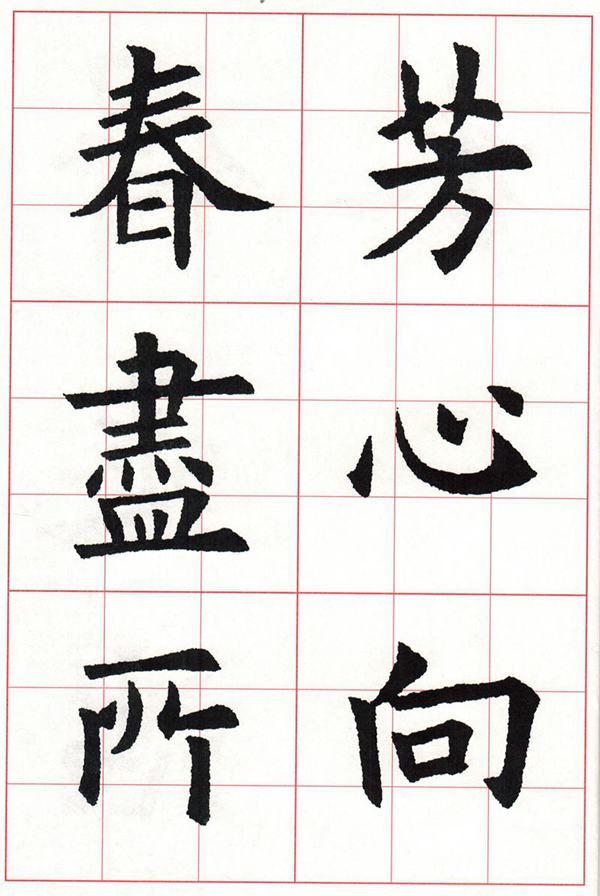 芳心向
春盡所